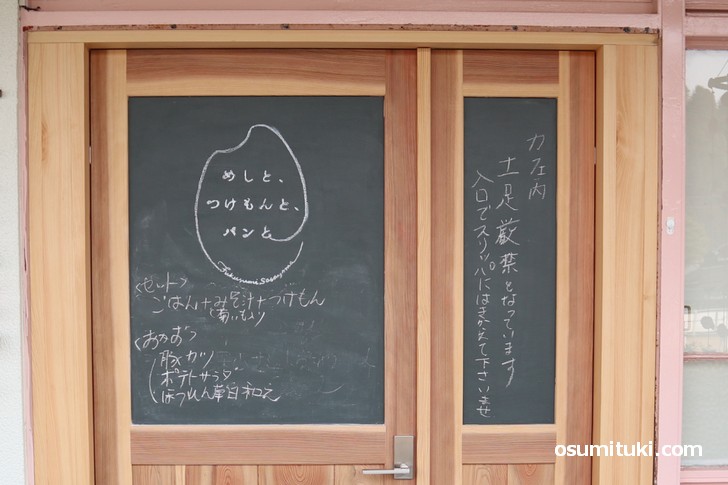 めしと、
つけもんと、
パンと
<セット>
ごはん+みそ汁+つけもん
<おかず>
豚カツ
ポテトサラダ
ほうれん草白和え
カフェ内
土足厳禁となっています
入口でスリッパにはきかえて下さいませ
osumituki.com